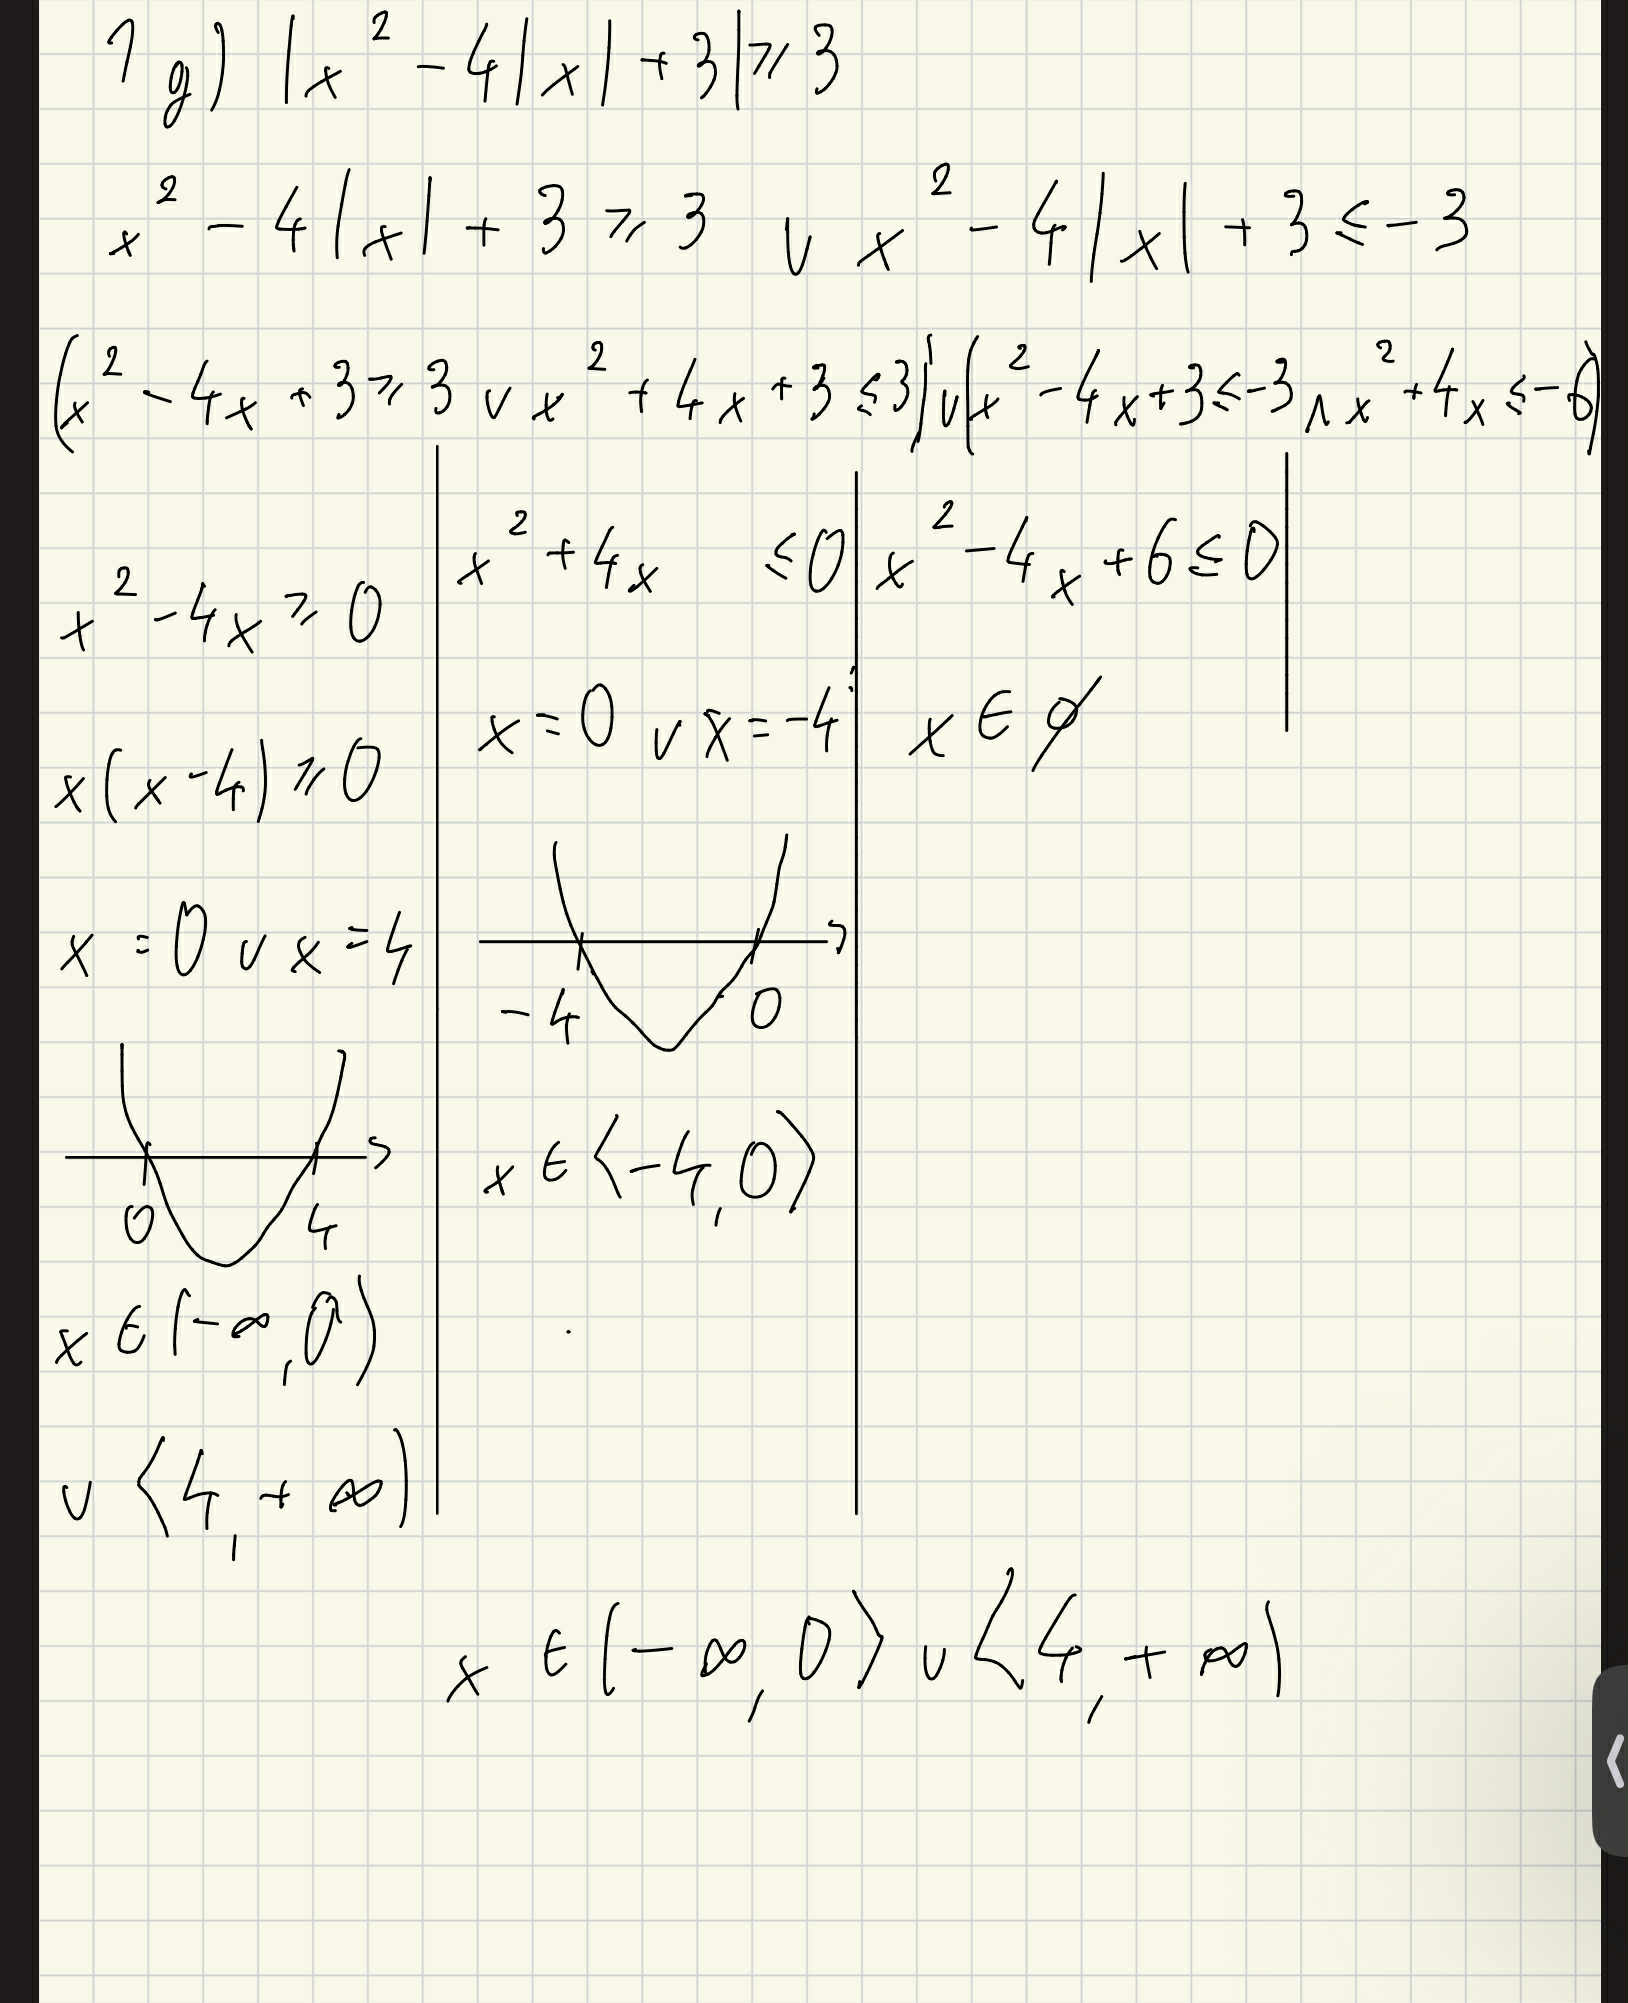 1g) |x² - 4|x| + 3| ⩾ 3
x² - 4|x| + 3 ⩾ 3 ∨ x² - 4|x| + 3 ≤ -3
(x² - 4x + 3 ⩾ 3 ∨ x² + 4x + 3 ≤ 3) ∨ (x² - 4x + 3 ≤ -3 ∧ x² + 4x ≤ -6)
x² - 4x ⩾ 0
x(x - 4) ⩾ 0
x = 0 ∨ x = 4
0 4
x ∈ (-∞, 0)
∪ ⟨4, +∞)
x² + 4x ≤ 0
x = 0 ∨ x = -4
-4 0
x ∈ ⟨-4, 0⟩
x² - 4x + 6 ≤ 0
x ∈ ∅
x ∈ (-∞, 0⟩ ∪ ⟨4, +∞)